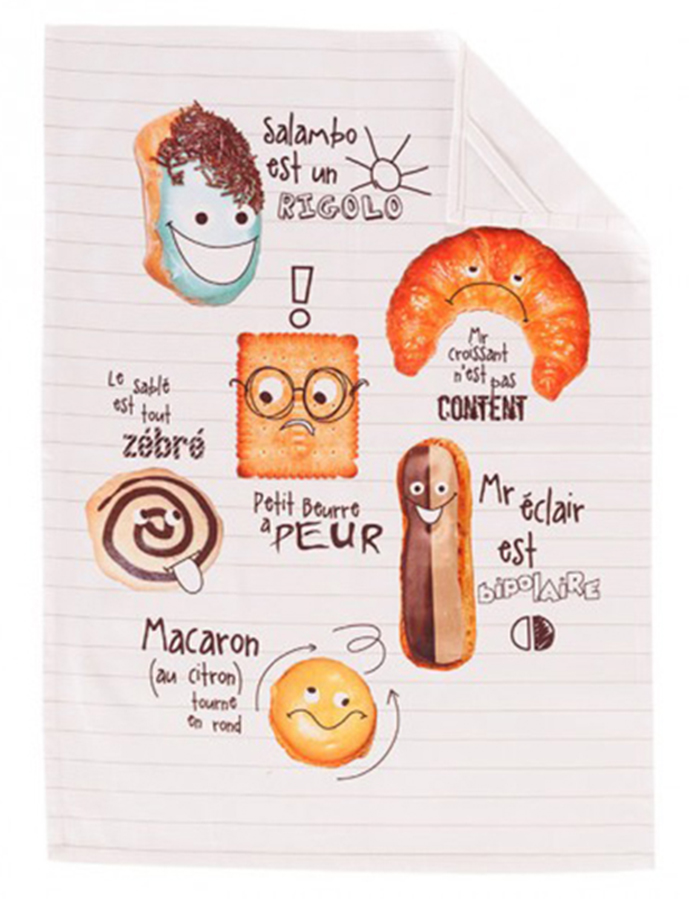 Salambo
est un
RIGOLO
!
Mr
croissant
n'est pas
CONTENT
Le sablé
est tout
zébré
Petit Beurre
a PEUR
Mr éclair
est
bipolaire
Macaron
(au citron)
tourne
en rond